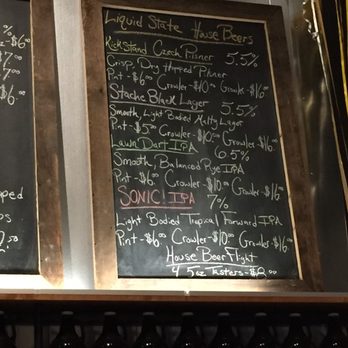 Liquid State House Beers
KickStand Czech Pilsner 5.5%
Crisp, Dry Hopped Pilsner
Pint-$6.00 Crowler-$10.00 Growler-$16.00
Stache Black Lager 5.5%
Smooth, Light Bodied Malty Lager
Pint-$5.00 Crowler-$10.00 Growler-$16.00
Lawn Dart IPA 6.5%
Smooth Balanced Rye IPA
Pint-$6.00 Crowler-$10.00 Growler-$16.00
SONIC! IPA 7%
Light Bodied Tropical Forward IPA
Pint-$6.00 Crowler-$10.00 Growler-$16.00
House Beer Flight
4 5oz Tasters-$8.00